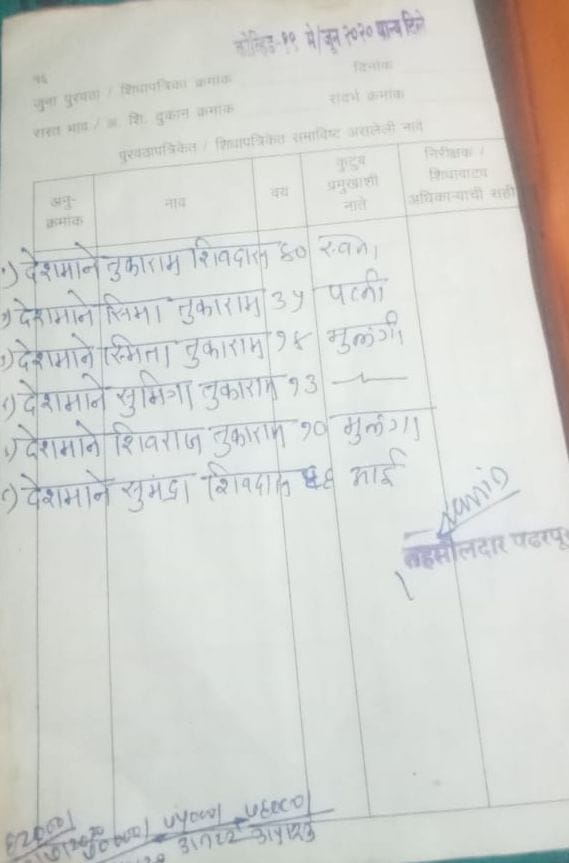 कोव्हिड-१९ मे/जून २०२० धान्य दिले
१६
जुना पुरवठा / शिधापत्रिका क्रमांक
दिनांक
रास्त भाव / अ. शि. दुकान क्रमांक
संदर्भ क्रमांक
पुरवठापत्रिकेत / शिधापत्रिकेत समाविष्ट असलेली नावे
अनु-क्रमांक नाव वय कुटुंब प्रमुखाशी नाते निरीक्षक / शिधावाटप अधिकाऱ्याची सही
१) देशमाने तुकाराम शिवदास ४० स्वतः
२) देशमाने सिमा तुकाराम ३५ पत्नी
३) देशमाने स्मिता तुकाराम १४ मुलगी
४) देशमाने सुमित्रा तुकाराम १३ —〃—
५) देशमाने शिवराज तुकाराम १० मुलगा
६) देशमाने सुमंद्रा शिवदास ६६ आई
तहसीलदार पंढरपूर